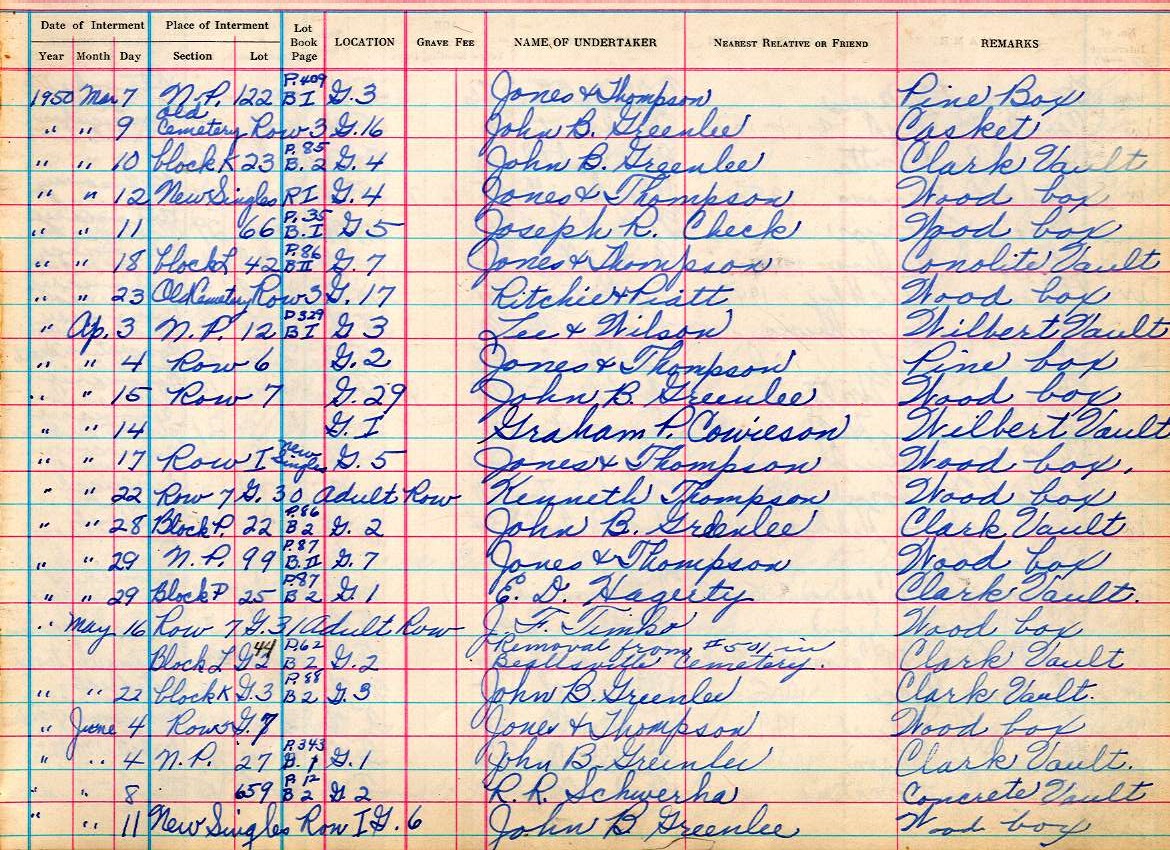 Date of Interment Place of Interment Lot Book Page LOCATION GRAVE FEE NAME OF UNDERTAKER NEAREST RELATIVE OR FRIEND REMARKS
Year Month Day Section Lot
1950 Mar 7 N.P. 122 P.409 B I G.3 Jones & Thompson Pine Box
" " 9 Old Cemetery Row 3 G.16 John B. Greenlee Casket
" " 10 block K 23 P.85 B.2 G.4 John B. Greenlee Clark Vault
" " 12 New Singles R I G.4 Jones & Thompson Wood box
" " 11 66 P.35 B.I G 5 Joseph R. Check Wood box
" " 18 block L 42 P.86 B II G.7 Jones & Thompson Conolite Vault
" " 23 Old Cemetry Row 3 G.17 Ritchie & Piatt Wood box
" Ap. 3 N.P. 12 P 329 B I G 3 Lee & Wilson Wilbert Vault
" " 4 Row 6 G.2 Jones & Thompson Pine box
" " 15 Row 7 G.29 John B. Greenlee Wood box
" " 14 G.I Graham P. Cowieson Wilbert Vault
" " 17 Row I New Singles G.5 Jones & Thompson Wood box.
" " 22 Row 7 G.30 Adult Row Kenneth Thompson Wood box
" " 28 Block P. 22 P.86 B 2 G.2 John B. Greenlee Clark Vault
" " 29 N.P. 99 P.87 B.II G.7 Jones & Thompson Wood box
" " 29 Block P 25 P.87 B 2 G 1 E. D. Hagerty Clark Vault.
" May 16 Row 7 G.31 Adult Row J. F. Timko Wood box
Block L 44 G 2 P.62 B 2 G.2 Removal from #501 in Beallsville Cemetery. Clark Vault
" " 22 block K G.3 P.88 B 2 G.3 John B. Greenlee Clark Vault.
" June 4 Row G.7 Jones & Thompson Wood box
" " 4 N.P. 27 P.343 B.1 G.1 John B. Greenlee Clark Vault.
" " 8 659 P.12 B 2 G 2 R. R. Schwerha Concrete Vault
" " 11 New Singles Row I G.6 John B Greenlee Wood box